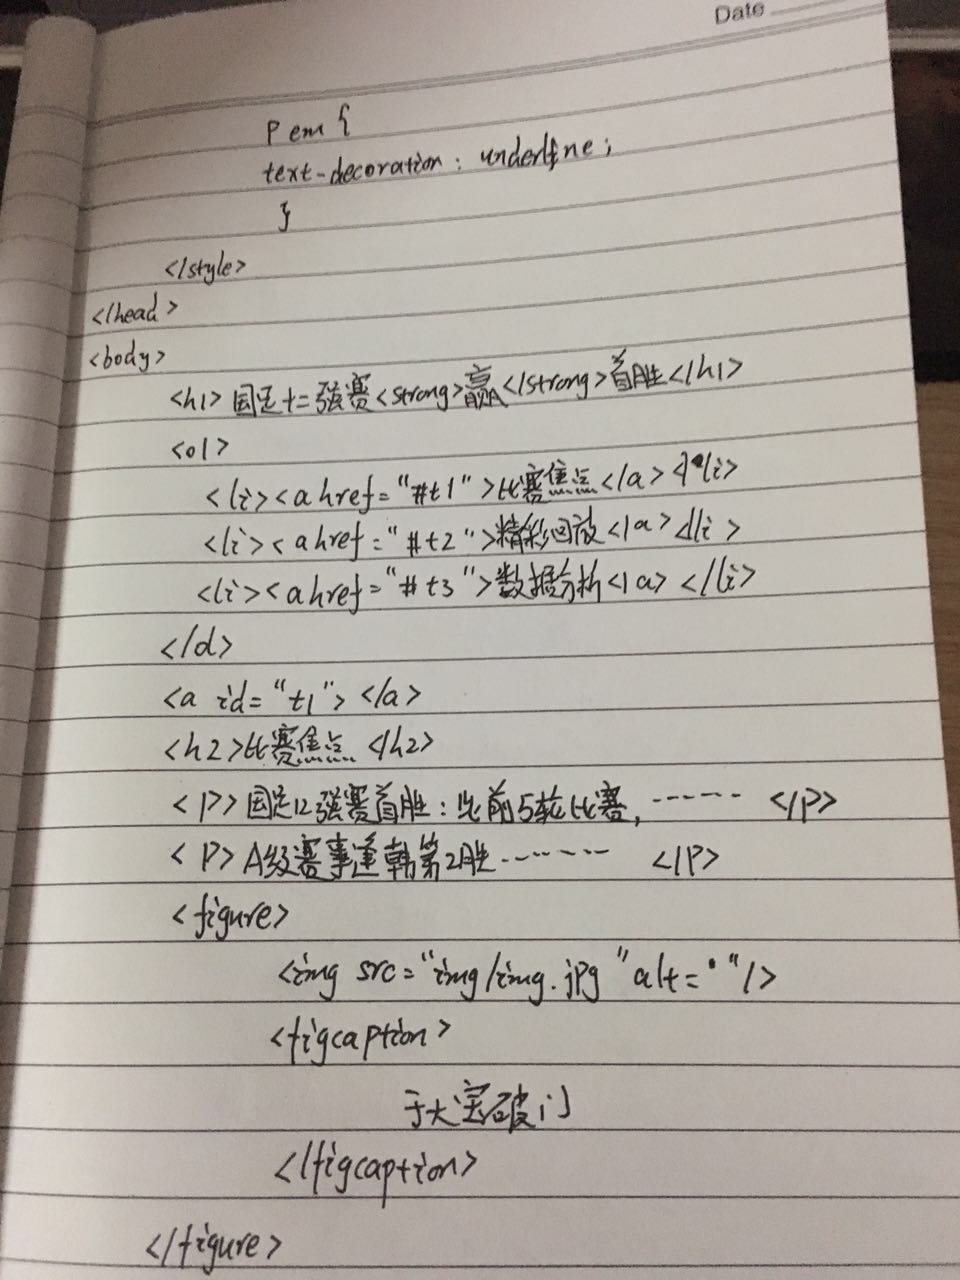 Date
p em {
text-decoration : underline ;
}
</style>
</head>
<body>
<h1> 国足十二强赛<strong>赢</strong>首胜</h1>
<ol>
<li><a href="#t1">比赛焦点</a></li>
<li><a href="#t2">精彩回放</a></li>
<li><a href="#t3">数据分析</a></li>
</ol>
<a id="t1"></a>
<h2>比赛焦点</h2>
<P>国足12强赛首胜：此前5轮比赛，…… </P>
<P>A级赛事逢韩第2胜…… </P>
<figure>
<img src="img/img.jpg" alt=""/>
<figcaption>
于大宝破门
</figcaption>
</figure>